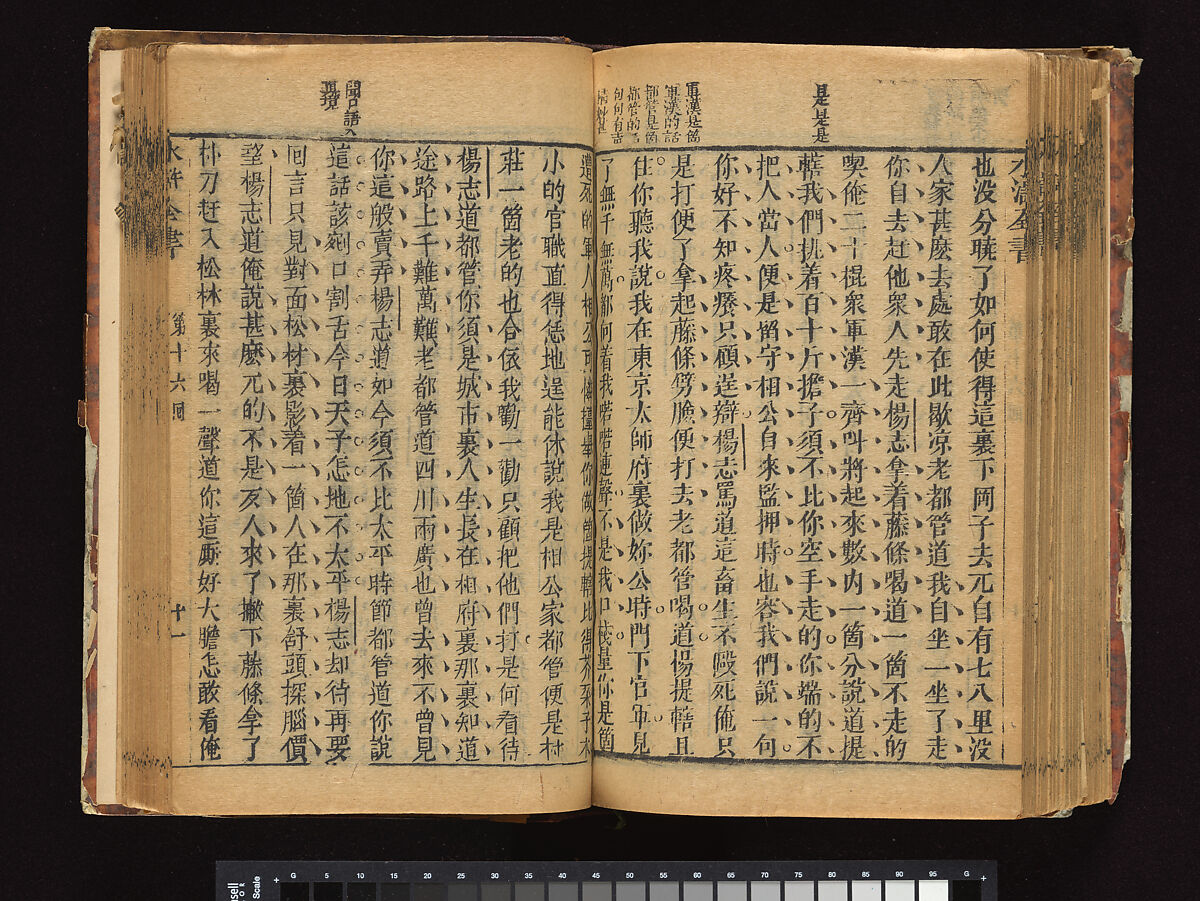 是是是
軍漢是箇
軍漢的話
都管是箇
都管的話
句句有
水滸全書
也没分曉了如何使得這裏下岡子去兀自有七八里没
人家甚麽去處敢在此歇凉老都管道我自坐一坐了走
你自去赶他衆人先走楊志拿着藤條喝道一箇不走的
喫俺二十棍衆軍漢一齊叫將起來數内一箇分說道提
轄我們挑着百十斤擔子須不比你空手走的你端的不
把人當人便是留守相公自來監押時也容我們說一句
你好不知疼癢只顧逞辯楊志罵道這畜生不毆死俺只
是打便了拿起藤條劈臉便打去老都管喝道楊提轄且
住你聽我說我在東京太師府裏做妳公時門下官軍見
了無千無萬都向着我喏喏連聲不是我口棧量你是箇
遭死的軍人相公可憐擡舉你做箇提轄比得芥菜子大
小的官職直得恁地逞能休說我是相公家都管便是村
莊一箇老的也合依我勸一勸只顧把他們打是何看待
楊志道都管你須是城市裏人生長在相府裏那裏知道
途路上千難萬難老都管道四川兩廣也曾去來不曾見
你這般賣弄楊志道如今須不比太平時節都管道你說
這話該剜口割舌今日天子怎地不太平楊志却待再要
回言只見對面松材裏影着一箇人在那裏舒頭探腦價
望楊志道俺說甚麽兀的不是歹人來了撇下藤條拿了
朴刀赶入松林裏來喝一聲道你這厮好大膽怎敢看俺
水滸全書
第十六回
十一